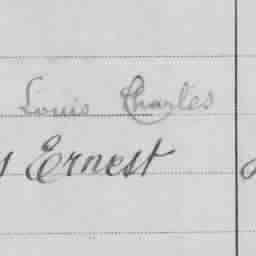 Louis Charles
s Ernest